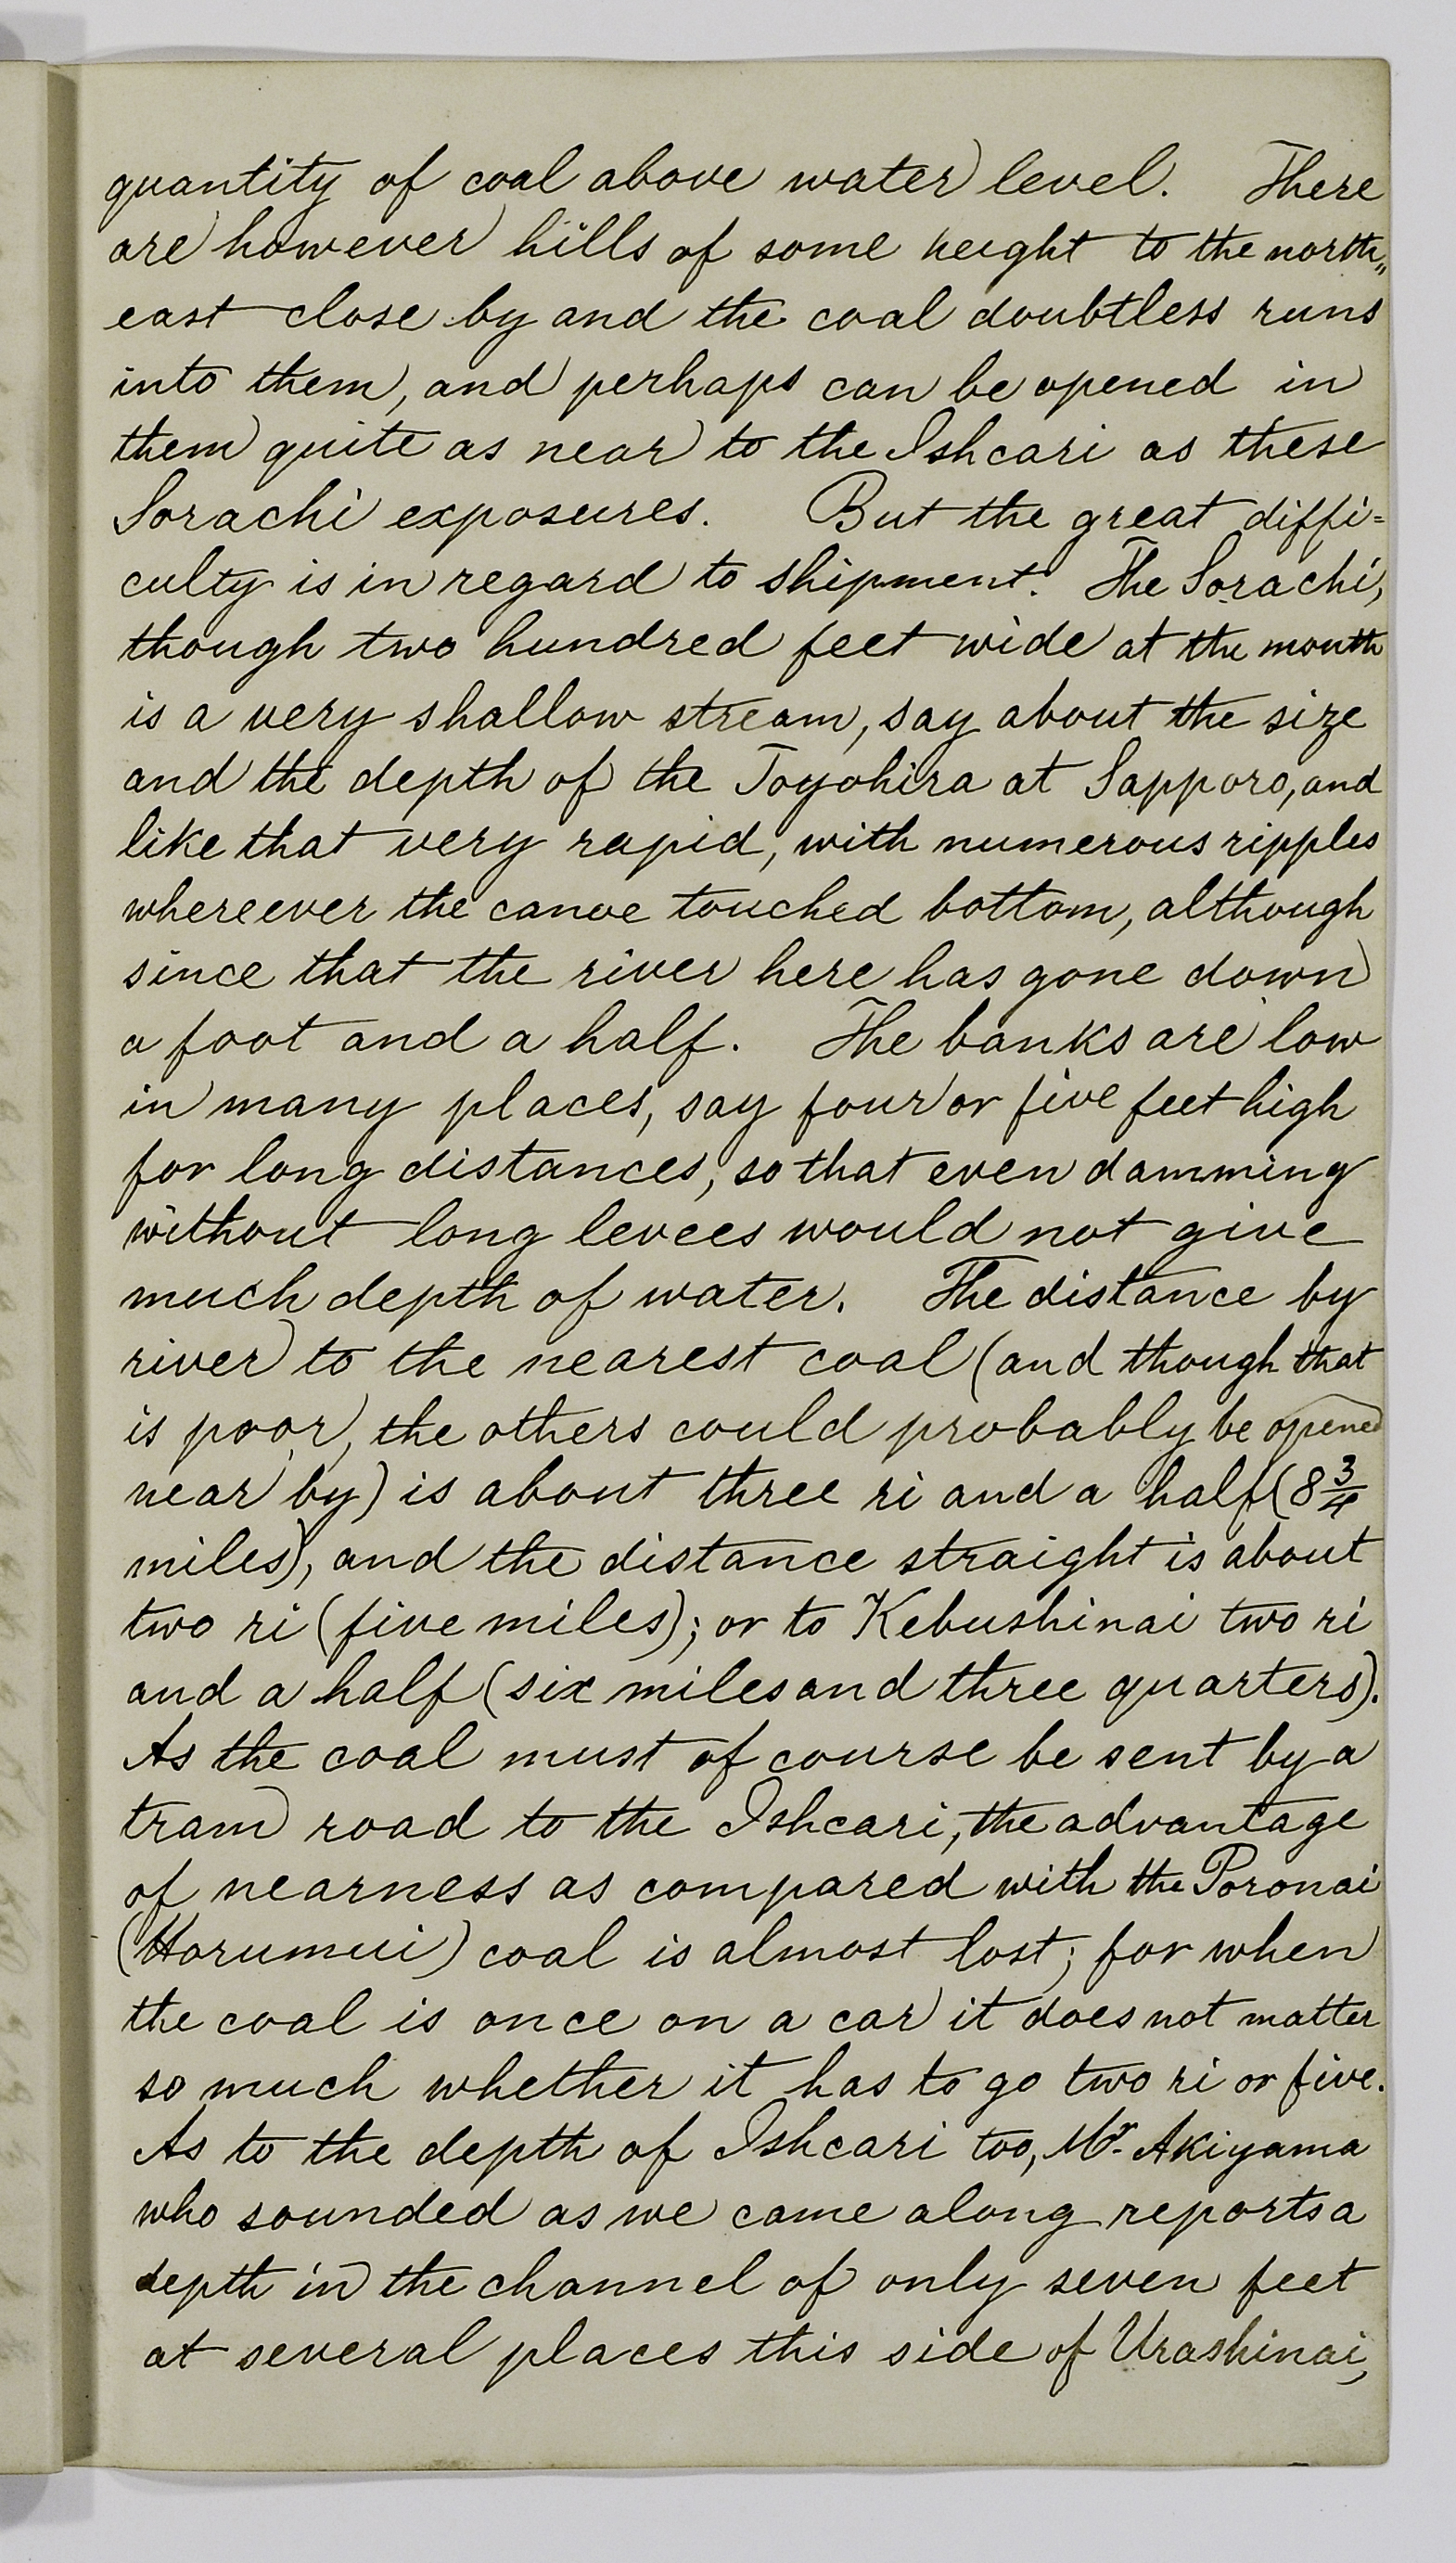 quantity of coal above water level. There
are however hills of some height to the north„
east close by and the coal doubtless runs
into them, and perhaps can be opened in
them quite as near to the Ishcari as these
Sorachi exposures. But the great diffi=
culty is in regard to shipment. The Sorachi,
though two hundred feet wide at the mouth
is a very shallow stream, say about the size
and the depth of the Toyohira at Sapporo, and
like that very rapid, with numerous ripples
whereever the canoe touched bottom, although
since that the river here has gone down
a foot and a half. The banks are low
in many places, say four or five feet high
for long distances, so that even damming
without long levees would not give
much depth of water. The distance by
river to the nearest coal (and though that
is poor, the others could probably be opened
near by) is about three ri and a half (8 3/4
miles), and the distance straight is about
two ri (five miles); or to Kebushinai two ri
and a half (six miles and three quarters).
As the coal must of course be sent by a
tram road to the Ishcari, the advantage
of nearness as compared with the Poronai
(Horumui) coal is almost lost; for when
the coal is once on a car it does not matter
so much whether it has to go two ri or five.
As to the depth of Ishcari too, Mr. Akiyama
who sounded as we came along reports a
depth in the channel of only seven feet
at several places this side of Urashinai,